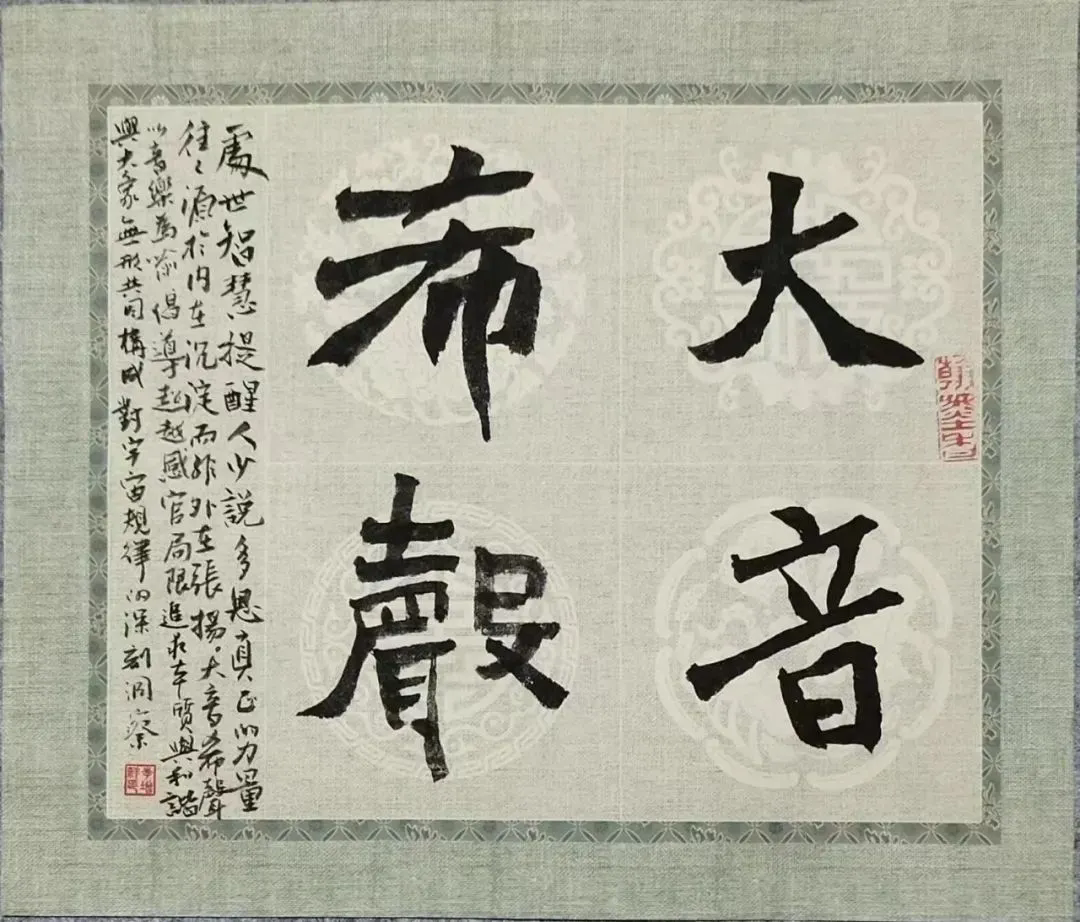 大音
希聲
處世智慧提醒人少說多思真正的力量
往〻源於内在沉淀而非外在張揚。大音希聲
以音樂爲喻倡導超越感官局限追求本質與和諧
與大象無形共同構成對宇宙規律的深刻洞察